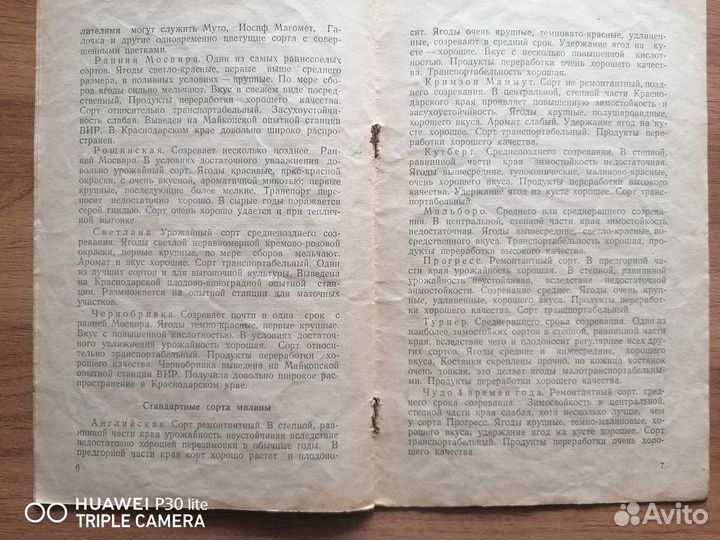 лителями могут служить Муто, Иосиф Магомет, Га-
лочка и другие одновременно цветущие сорта с совер-
шенными цветками.
Ранняя Мосвира. Один из самых раннеспелых
сортов. Ягоды светло-красные, первые выше среднего
размера, и поливных условиях — крупные. По мере сбо-
ров ягоды сильно мельчают. Вкус в свежем виде посред-
ственный, Продукты переработки хорошего качества.
Сорт относительно транспортабельный. Засухоустойчи-
вость слабая. Выведен на Майкопской опытной станции
ВИР. В Краснодарском крае довольно широко распро-
странен.
Рощинская. Созревает несколько позднее Ран-
ней Мосвира. В условиях достаточного увлажнения до-
вольно урожайный сорт. Ягоды красивые, ярко-красной
окраски, с очень вкусной, ароматичной мякотью; первые
крупные, последующие более мелкие. Транспорт пере-
носят недостаточно хорошо. В сырые годы поражается
серой гнилью. Сорт очень хорошо удается и при теплич-
ной выгонке.
Светлана. Урожайный сорт среднепозднего соз-
ревания. Ягоды светлой неравномерной кремово-розовой
окраски, первые крупные, по мере сборов мельчают.
Аромат и вкус хорошие. Сорт транспортабельный. Один
из лучших сортов и для выгоночной культуры. Выведена
на Краснодарской плодово-виноградной опытной стан-
ции. Размножается на опытной станции для маточных
участков.
Чернобривка. Созревает почти в один срок с
ранней Мосвира. Ягоды темно-красные, первые крупные.
Вкус с повышенной кислотностью. В условиях достаточ-
ного увлажнения урожайность хорошая. Сорт относи-
тельно транспортабельный. Продукты переработки хо-
рошего качества. Чернобривка выведена на Майкопской
опытной станции ВИР. Получила довольно широкое рас-
пространение в Краснодарском крае.
Стандартные сорта малины
Английская. Сорт ремонтантный. В степной, рав-
нинной части края урожайность неустойчивая вследствие
недостаточно хорошей перезимовки в обычные годы. В
предгорной части края сорт хорошо растет и плодоно-
6
сит. Ягоды очень крупные, темновато-красные, удлинен-
ные, созревают в средний срок. Удержание ягод на ку-
сте — хорошее. Вкус хороший с повышенной кислот-
ностью. Продукты переработки очень хорошего качест-
ва. Транспортабельность хорошая.
Кримзон Маммут. Сорт не ремонтантный, позд-
него созревания. В центральной, степной части Красно-
дарского края проявляет повышенную зимостойкость и
засухоустойчивость. Ягоды крупные, полушаровидные,
хорошего вкуса. Аромат слабый. Удержание ягод на ку-
сте хорошее. Сорт транспортабельный. Продукты пере-
работки хорошего качества.
Кутберт. Среднепозднего созревания. В степной,
равнинной части края зимостойкость недостаточная.
Ягоды вышесредние, тупоконические, малиново-красные,
очень хорошего вкуса. Продукты переработки высокого
качества. Удержание ягод на кусте хорошее. Сорт тран-
спортабельный.
Мальборо. Среднего или среднераннего созрева-
ния. В центральной, степной части края зимостойкость
недостаточная. Ягоды вышесредние, светло-красные, по-
средственного вкуса. Транспортабельность хорошая, про-
дукты переработки высокого качества.
Прогресс. Ремонтантный сорт. В предгорной ча-
сти края урожайность хорошая. В степной, равнинной
урожайность неустойчивая, вследствие недостаточной
зимостойкости. Среднего созревания. Ягоды очень круп-
ные, удлиненные, хорошего вкуса. Продукты переработ-
ки хорошего качества. Сорт транспортабельный.
Турнер. Среднераннего срока созревания. Один из
наиболее зимостойких сортов в степной, равнинной части
края, вследствие чего и плодоносит регулярнее всех дру-
гих сортов. Ягоды средние и нижесредние, хорошего
вкуса. Костянки скреплены прочно, но кожица костянок
очень тонкая, это делает ягоды малотранспортабельны-
ми. Продукты переработки хорошего качества.
Чудо 4 времен года. Ремонтантный сорт, сред-
него срока созревания. Зимостойкость в центральной,
степной части края слабая, хотя несколько лучше, чем
у сорта Прогресс. Ягоды крупные, темно-малиновые, хо-
рошего вкуса, удержание ягод на кусте хорошее. Сорт
транспортабельный. Продукты переработки очень хоро-
шего качества.
7
HUAWEI P30 lite
TRIPLE CAMERA
Avito